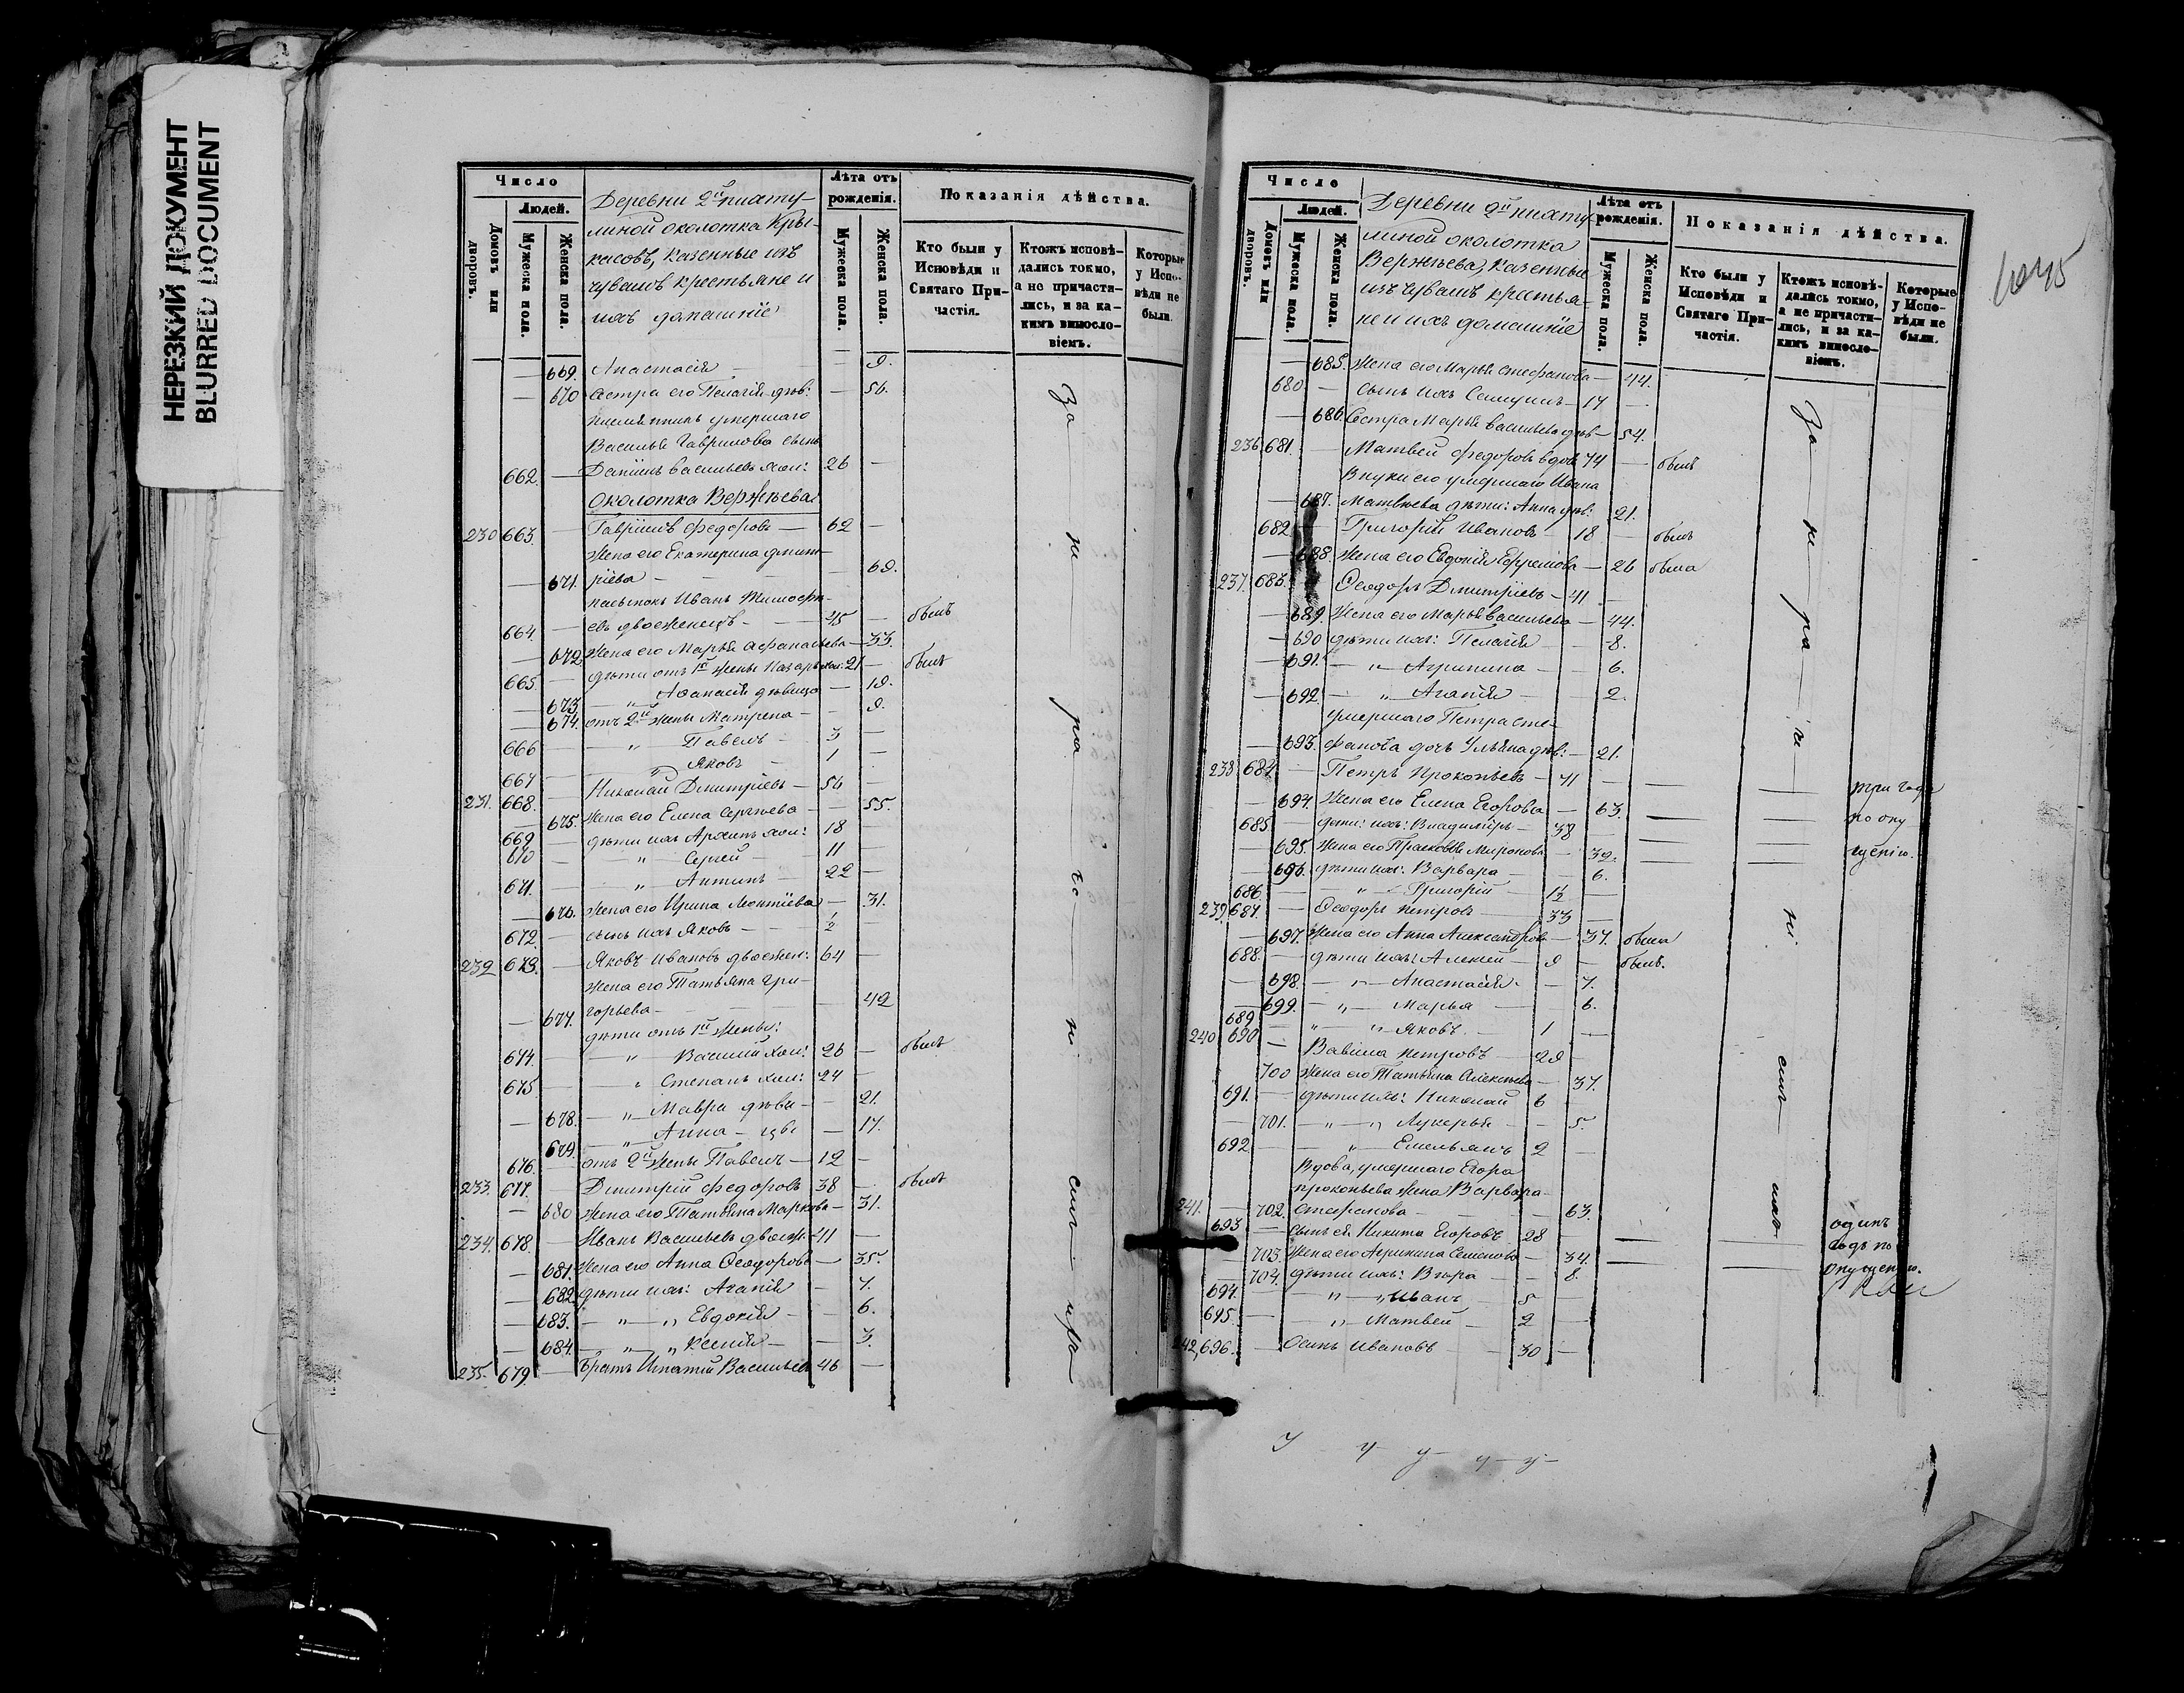 НЕРЕЗКИЙ ДОКУМЕНТ
BLURRED DOCUMENT
Число
Людей.
Домовъ или дворовъ.
Мужеска пола.
Женска пола.
Деревни 2й
околотка
касовъ, казенные изъ
чувашъ крестьяне и
ихъ домашнiе
Лѣта отъ рожденiя.
Мужеска пола.
Женска пола.
Показанiя дѣйства.
Кто были у Исповѣди и Святаго Причастiя.
Ктожъ исповѣдались токмо, а не причастились, и за какимъ винословiемъ.
Которые у Исповѣди не были.
— 669. Анастасiя — 9.
— 670 сестра его Пелагiя дѣв: — 56.
племянникъ умершаго
Василья Гаврилова сынъ
662. — Данiилъ Васильевъ хол: 26 —
Околотка Вержѣева
230 663. — Гаврiилъ Федоровъ — 62 —
жена его Екатерина Дмит-
— 671. рiева — — 69.
пасынокъ Иванъ Тимофѣ-
664. — евъ двоеженецъ — 45 — былъ
— 672 Жена его Марья Афанасьева — 33.
665. — дѣти отъ 1й жены Назаръ хол: 21 — былъ
— 673. " Афанасiя дѣвица — 19.
— 674. отъ 2й жены Матрена — 9.
666 — " Павелъ — 3 —
667 — " Яковъ — 1 —
231. 668. — Николай Дмитрiевъ — 56 —
— 675. жена его Елена Сергѣева — 55.
669 — дѣти ихъ Архипъ хол: 18 —
670 — " Сергѣй — 11 —
671. — " Антипъ — 22 —
— 676. жена его Ирина Леонтiева — 31.
672. — сынъ ихъ Яковъ — 1/2 —
232 673. — Яковъ Ивановъ двоежен: 64 —
жена его Татьяна Гри-
— 677. горьева — — 42
дѣти отъ 1й жены:
674 — " Василiй хол: 26 — былъ
675 — " Степанъ хол: 24 —
— 678. — " Мавра дѣви — 21.
679. — " Анна — — 17.
676. — отъ 2й жены Павелъ — 12 —
233. 677. — Дмитрiй Федоровъ 38 — былъ
— 680 жена его Татьяна Маркова — 31.
234. 678. — Иванъ Васильевъ двоеж. 41 —
— 681. жена его Анна Ѳеодорова — 35.
— 682 дѣти ихъ: Агапiя — 7.
— 683. — " — " Евдокiя — 6.
— 684. — " — " Ксенiя — 3.
235. 679. — Братъ Игнатiй Васильевъ 46 —
За не ра
Число
Людей.
Домовъ или дворовъ.
Мужеска пола.
Женска пола.
Деревни 2й
околотка
Вержѣева, казенные
изъ чувашъ крестья-
не и ихъ домашнiе
Лѣта отъ рожденiя.
Мужеска пола.
Женска пола.
Показанiя дѣйства.
Кто были у Исповѣди и Святаго Причастiя.
Ктожъ исповѣдались токмо, а не причастились, и за какимъ винословiемъ.
Которые у Исповѣди не были.
— 685. Жена его Марья Стефанова — 44.
680 — сынъ ихъ — 17 —
— 686. Сестра Марья Васильева дѣв — 54.
236 681. — Матвей Федоровъ вдов 74 — былъ
Внуки его умершаго Ивана
— 687. Матвѣева дѣти: Анна дѣв: 21.
682 — Григорiй Ивановъ — 18 — былъ
— 688. Жена его Евдокiя Ефремова — 26 была
237. 683. Ѳеодоръ Дмитрiевъ — 41 —
— 689. Жена его Марья Васильева — 44.
— 690 дѣти ихъ: Пелагiя — 8.
— 691. — " Агрипина — 6.
— 692. — " Агапiя — 2.
умершаго Петра Сте-
— 693. фанова дочь Ульяна дѣв: — 21.
238 684. — Петръ Прокопьевъ — 71 — — — три года
— 694. Жена его Елена Егорова — 63. — — по опу
685. дѣти ихъ: Владимiръ — 38 —
— 695. жена его Прасковья Миронова — 32. — — щенiю.
— 696. дѣти ихъ: Варвара — 6.
686. — " Григорiй — 1 1/2
239 687. — Ѳеодоръ Петровъ — 33 —
— 697. Жена его Анна Александрова — 37. была
688. — дѣти ихъ: Алексѣй — 9 — былъ.
— 698. — " — Анастасiя — 7.
— 699. — " — Марья — 6.
689 — " — " Яковъ — 1 —
240 690 — Вавила Петровъ — 29 —
700 Жена его Татьяна Алексѣева — 37.
691. — дѣти ихъ: Николай 6
— 701. — " — " Лукерья — 5.
692 — — " Емельянъ 2 —
Вдова, умершаго Егора
Прокопьева жена Варвара
241. — 702. Стефанова — 63.
693 — сынъ ея Никита Егоровъ — 28 — — одинъ
— 703. Жена его Агрипина Семенова — 34. — — годъ по
— 704. дѣти ихъ: Вѣра — 8. опущенiю.
694. — " — " Иванъ — 5 —
695. — " Матвей — 2 —
242, 696. — Осипъ Ивановъ — 30 —
За не ра